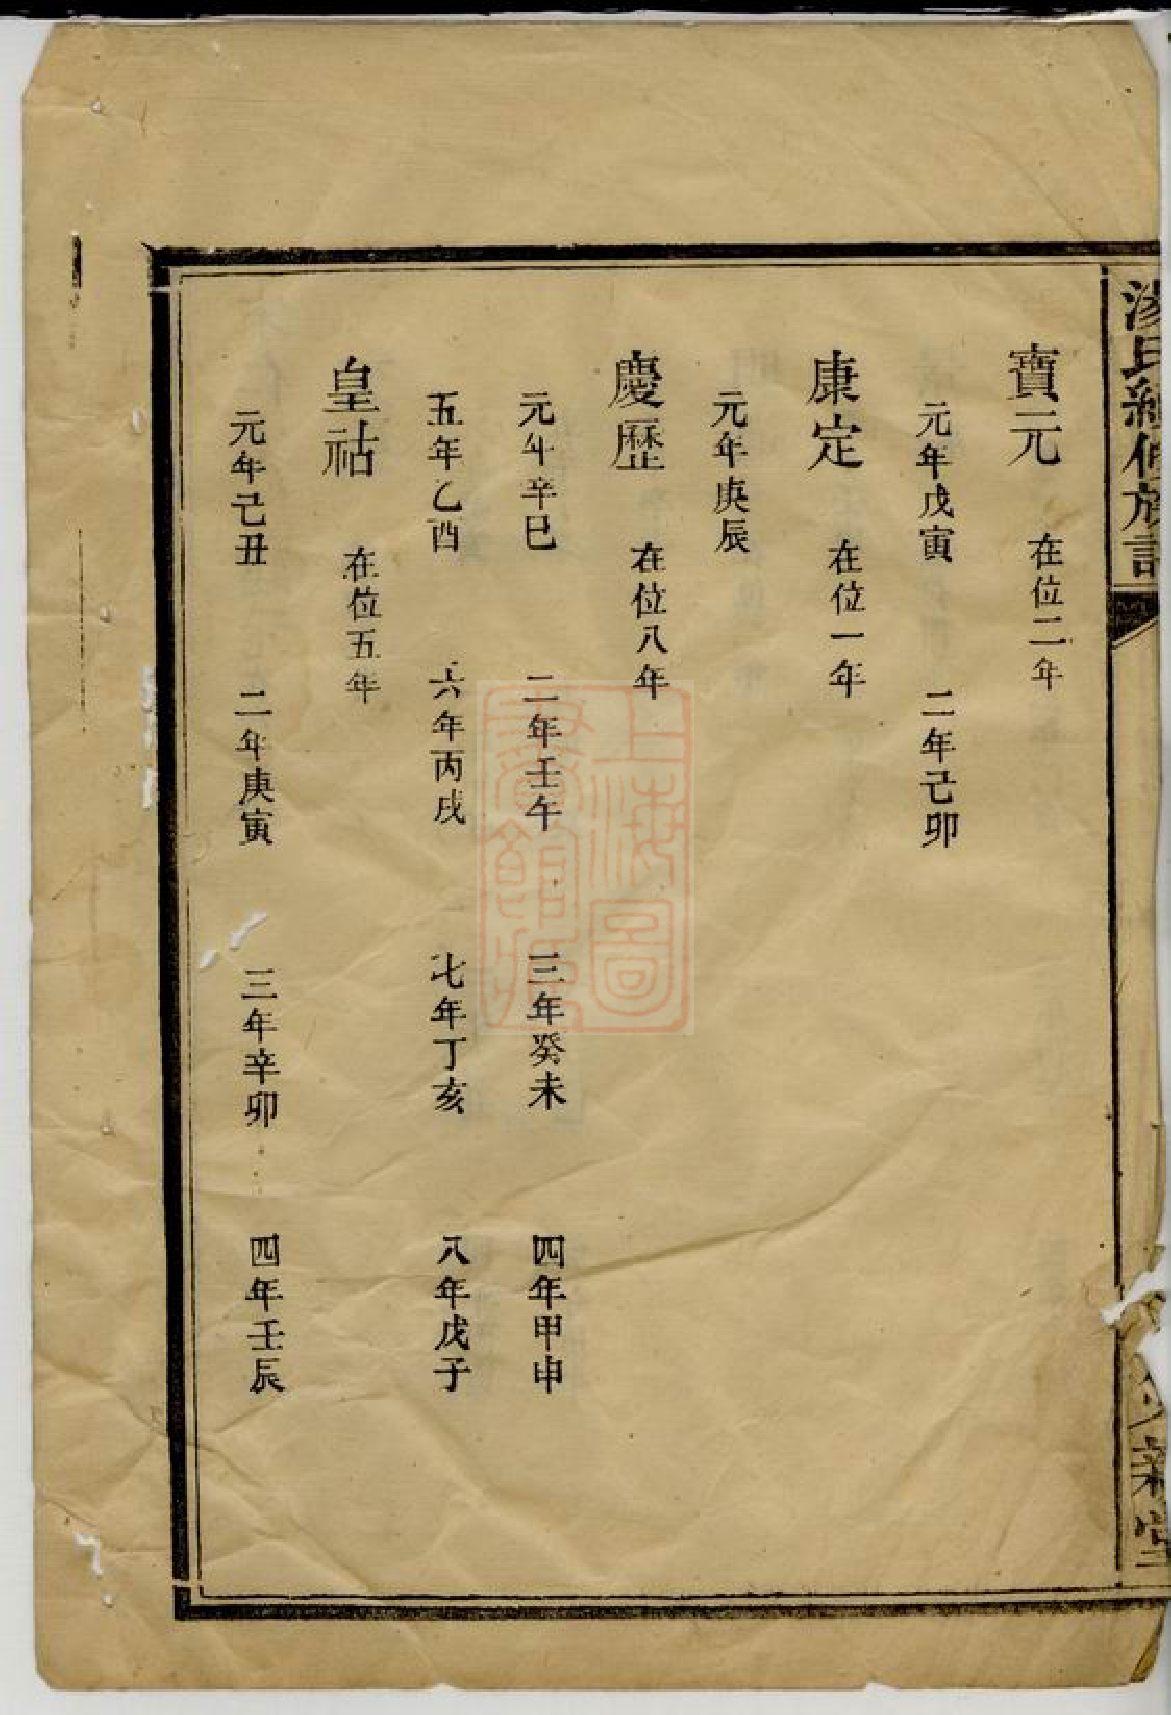 湯氏續修族譜
新堂
寶元 在位二年
元年戊寅 二年己卯
康定 在位一年
元年庚辰
慶歷 在位八年
元年辛巳 二年壬午 三年癸未 四年甲申
五年乙酉 六年丙戌 七年丁亥 八年戊子
皇祐 在位五年
元年己丑 二年庚寅 三年辛卯 四年壬辰
上海圖書館藏